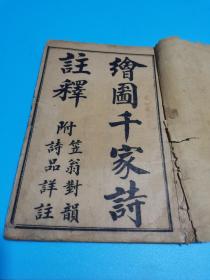 繪圖千家詩
註釋
附笠翁對韻
詩品詳註